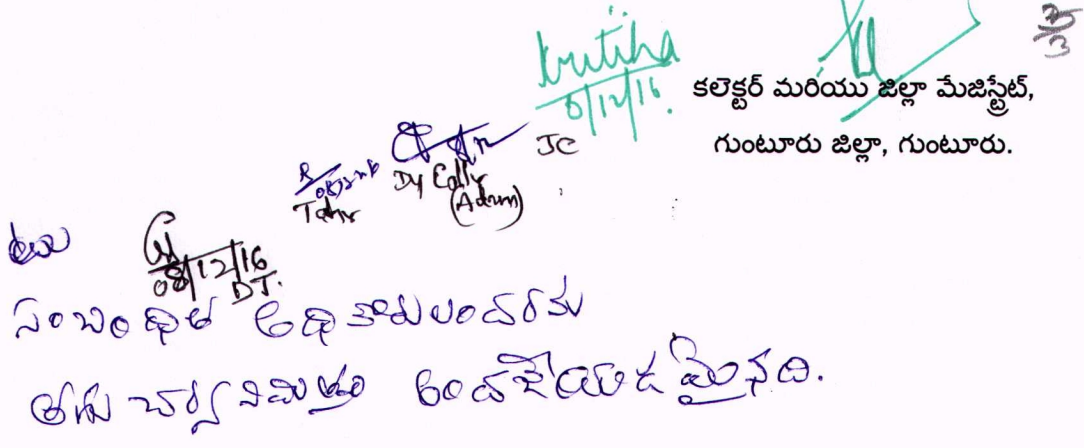 3/3
Krutika
8/12/16.
కలెక్టర్ మరియు జిల్లా మేజిస్ట్రేట్,
గుంటూరు జిల్లా, గుంటూరు.
JC
Dy Collr
(Admn)
Tahr
08/12/16
DT.
సంబంధిత అధికారులందరకు
తగు చర్య నిమిత్తం అందజేయడమైనది.